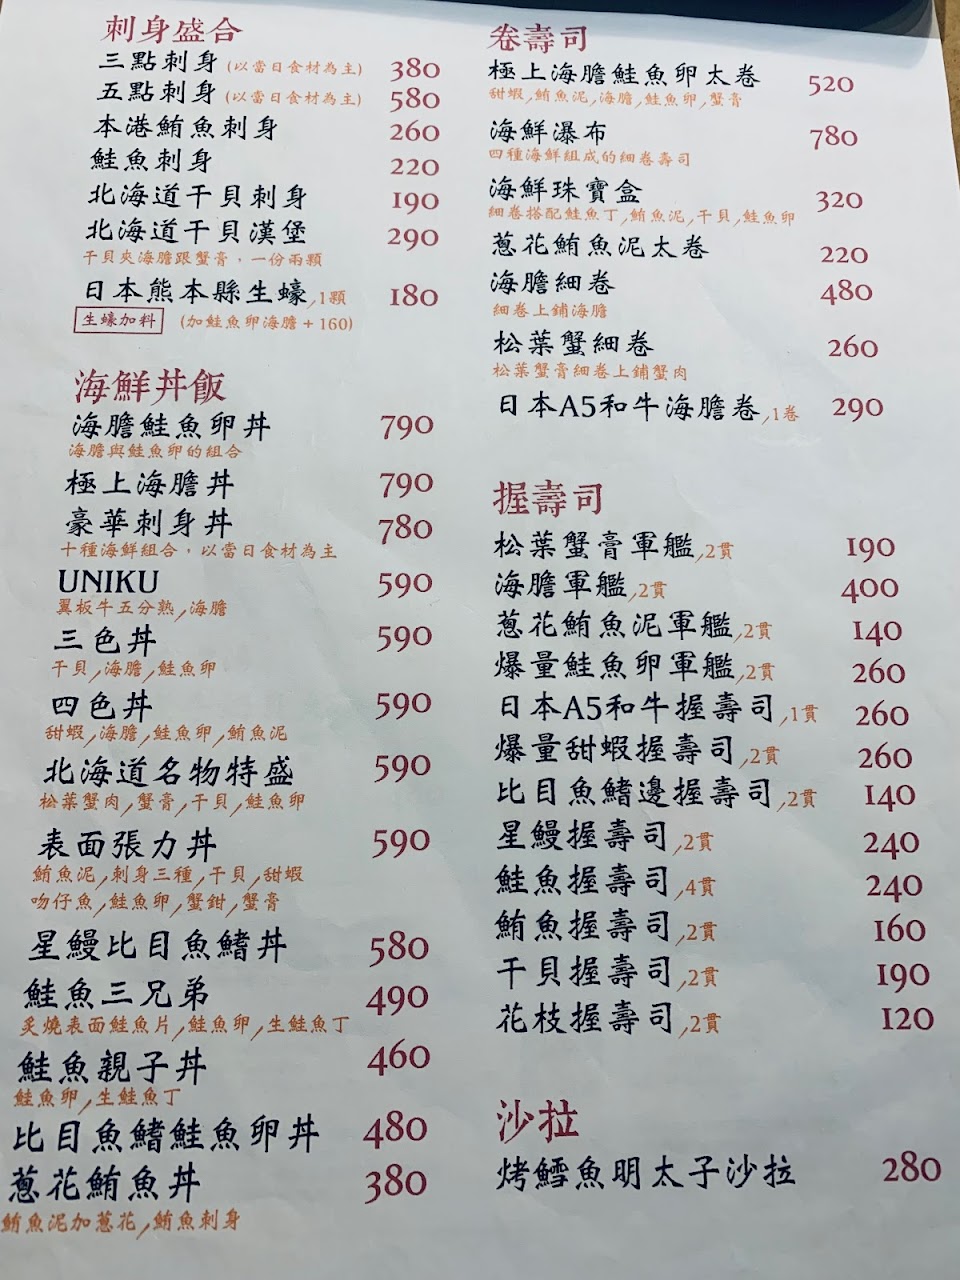 刺身盛合
三點刺身(以當日食材為主) 380
五點刺身(以當日食材為主) 580
本港鮪魚刺身 260
鮭魚刺身 220
北海道干貝刺身 190
北海道干貝漢堡 290
干貝夾海膽跟蟹膏，一份兩顆
日本熊本縣生蠔,1顆 180
生蠔加料 (加鮭魚卵海膽+160)
海鮮丼飯
海膽鮭魚卵丼 790
海膽與鮭魚卵的組合
極上海膽丼 790
豪華刺身丼 780
十種海鮮組合，以當日食材為主
UNIKU 590
翼板牛五分熟,海膽
三色丼 590
干貝,海膽,鮭魚卵
四色丼 590
甜蝦,海膽,鮭魚卵,鮪魚泥
北海道名物特盛 590
松葉蟹肉,蟹膏,干貝,鮭魚卵
表面張力丼 590
鮪魚泥,刺身三種,干貝,甜蝦
吻仔魚,鮭魚卵,蟹鉗,蟹膏
星鰻比目魚鰭丼 580
鮭魚三兄弟 490
炙燒表面鮭魚片,鮭魚卵,生鮭魚丁
鮭魚親子丼 460
鮭魚卵,生鮭魚丁
比目魚鰭鮭魚卵丼 480
蔥花鮪魚丼 380
鮪魚泥加蔥花,鮪魚刺身
卷壽司
極上海膽鮭魚卵太卷 520
甜蝦,鮪魚泥,海膽,鮭魚卵,蟹膏
海鮮瀑布 780
四種海鮮組成的細卷壽司
海鮮珠寶盒 320
細卷搭配鮭魚丁,鮪魚泥,干貝,鮭魚卵
蔥花鮪魚泥太卷 220
海膽細卷 480
細卷上鋪海膽
松葉蟹細卷 260
松葉蟹膏細卷上鋪蟹肉
日本A5和牛海膽卷,1卷 290
握壽司
松葉蟹膏軍艦,2貫 190
海膽軍艦,2貫 400
蔥花鮪魚泥軍艦,2貫 140
爆量鮭魚卵軍艦,2貫 260
日本A5和牛握壽司,1貫 260
爆量甜蝦握壽司,2貫 260
比目魚鰭邊握壽司,2貫 140
星鰻握壽司,2貫 240
鮭魚握壽司,4貫 240
鮪魚握壽司,2貫 160
干貝握壽司,2貫 190
花枝握壽司,2貫 120
沙拉
烤鱈魚明太子沙拉 280